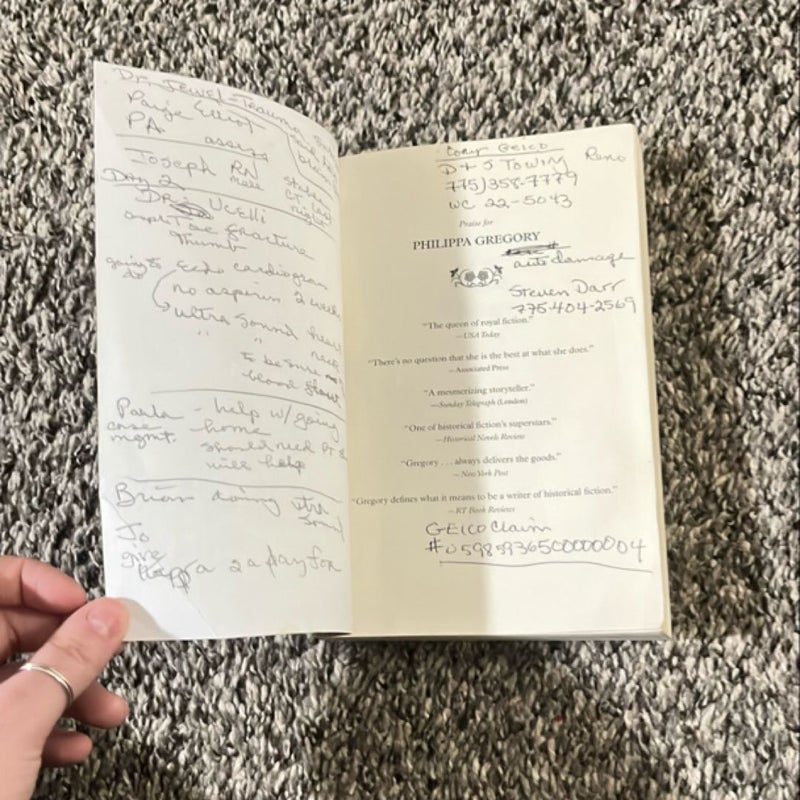 Dr. Jewel-Trauma
Paige Elliot
PA assess
Joseph RN
male
CT last
night
Day 2
Dr. Ucelli
Toe fracture
Thumb
going to
do
no aspirin 2 weeks
ultra sound heart
" " neck
to be sure
blood flow
Paula - help w/going
case home
mgmt. should need PT &
will help
Brian doing ultra
sound
Jo
give
a day for
Cory GEICO
D + J TOWING Reno
775)358-7779
WC 22-5043
Praise for
PHILIPPA GREGORY
auto damage
Steven Darr
775-404-2569
"The queen of royal fiction."
—USA Today
"There's no question that she is the best at what she does."
—Associated Press
"A mesmerizing storyteller."
—Sunday Telegraph (London)
"One of historical fiction's superstars."
—Historical Novels Review
"Gregory . . . always delivers the goods."
—New York Post
"Gregory defines what it means to be a writer of historical fiction."
—RT Book Reviews
GEICO Claim
#0598593650000004